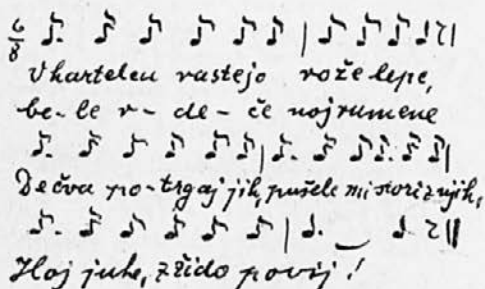 6/8
V hartelcu rastejo rože lepe,
be-le r-de-če noj rumene
Dečva po-trgaj jih, pušelc mi stori z njih,
Hoj juhe, z žido povij!